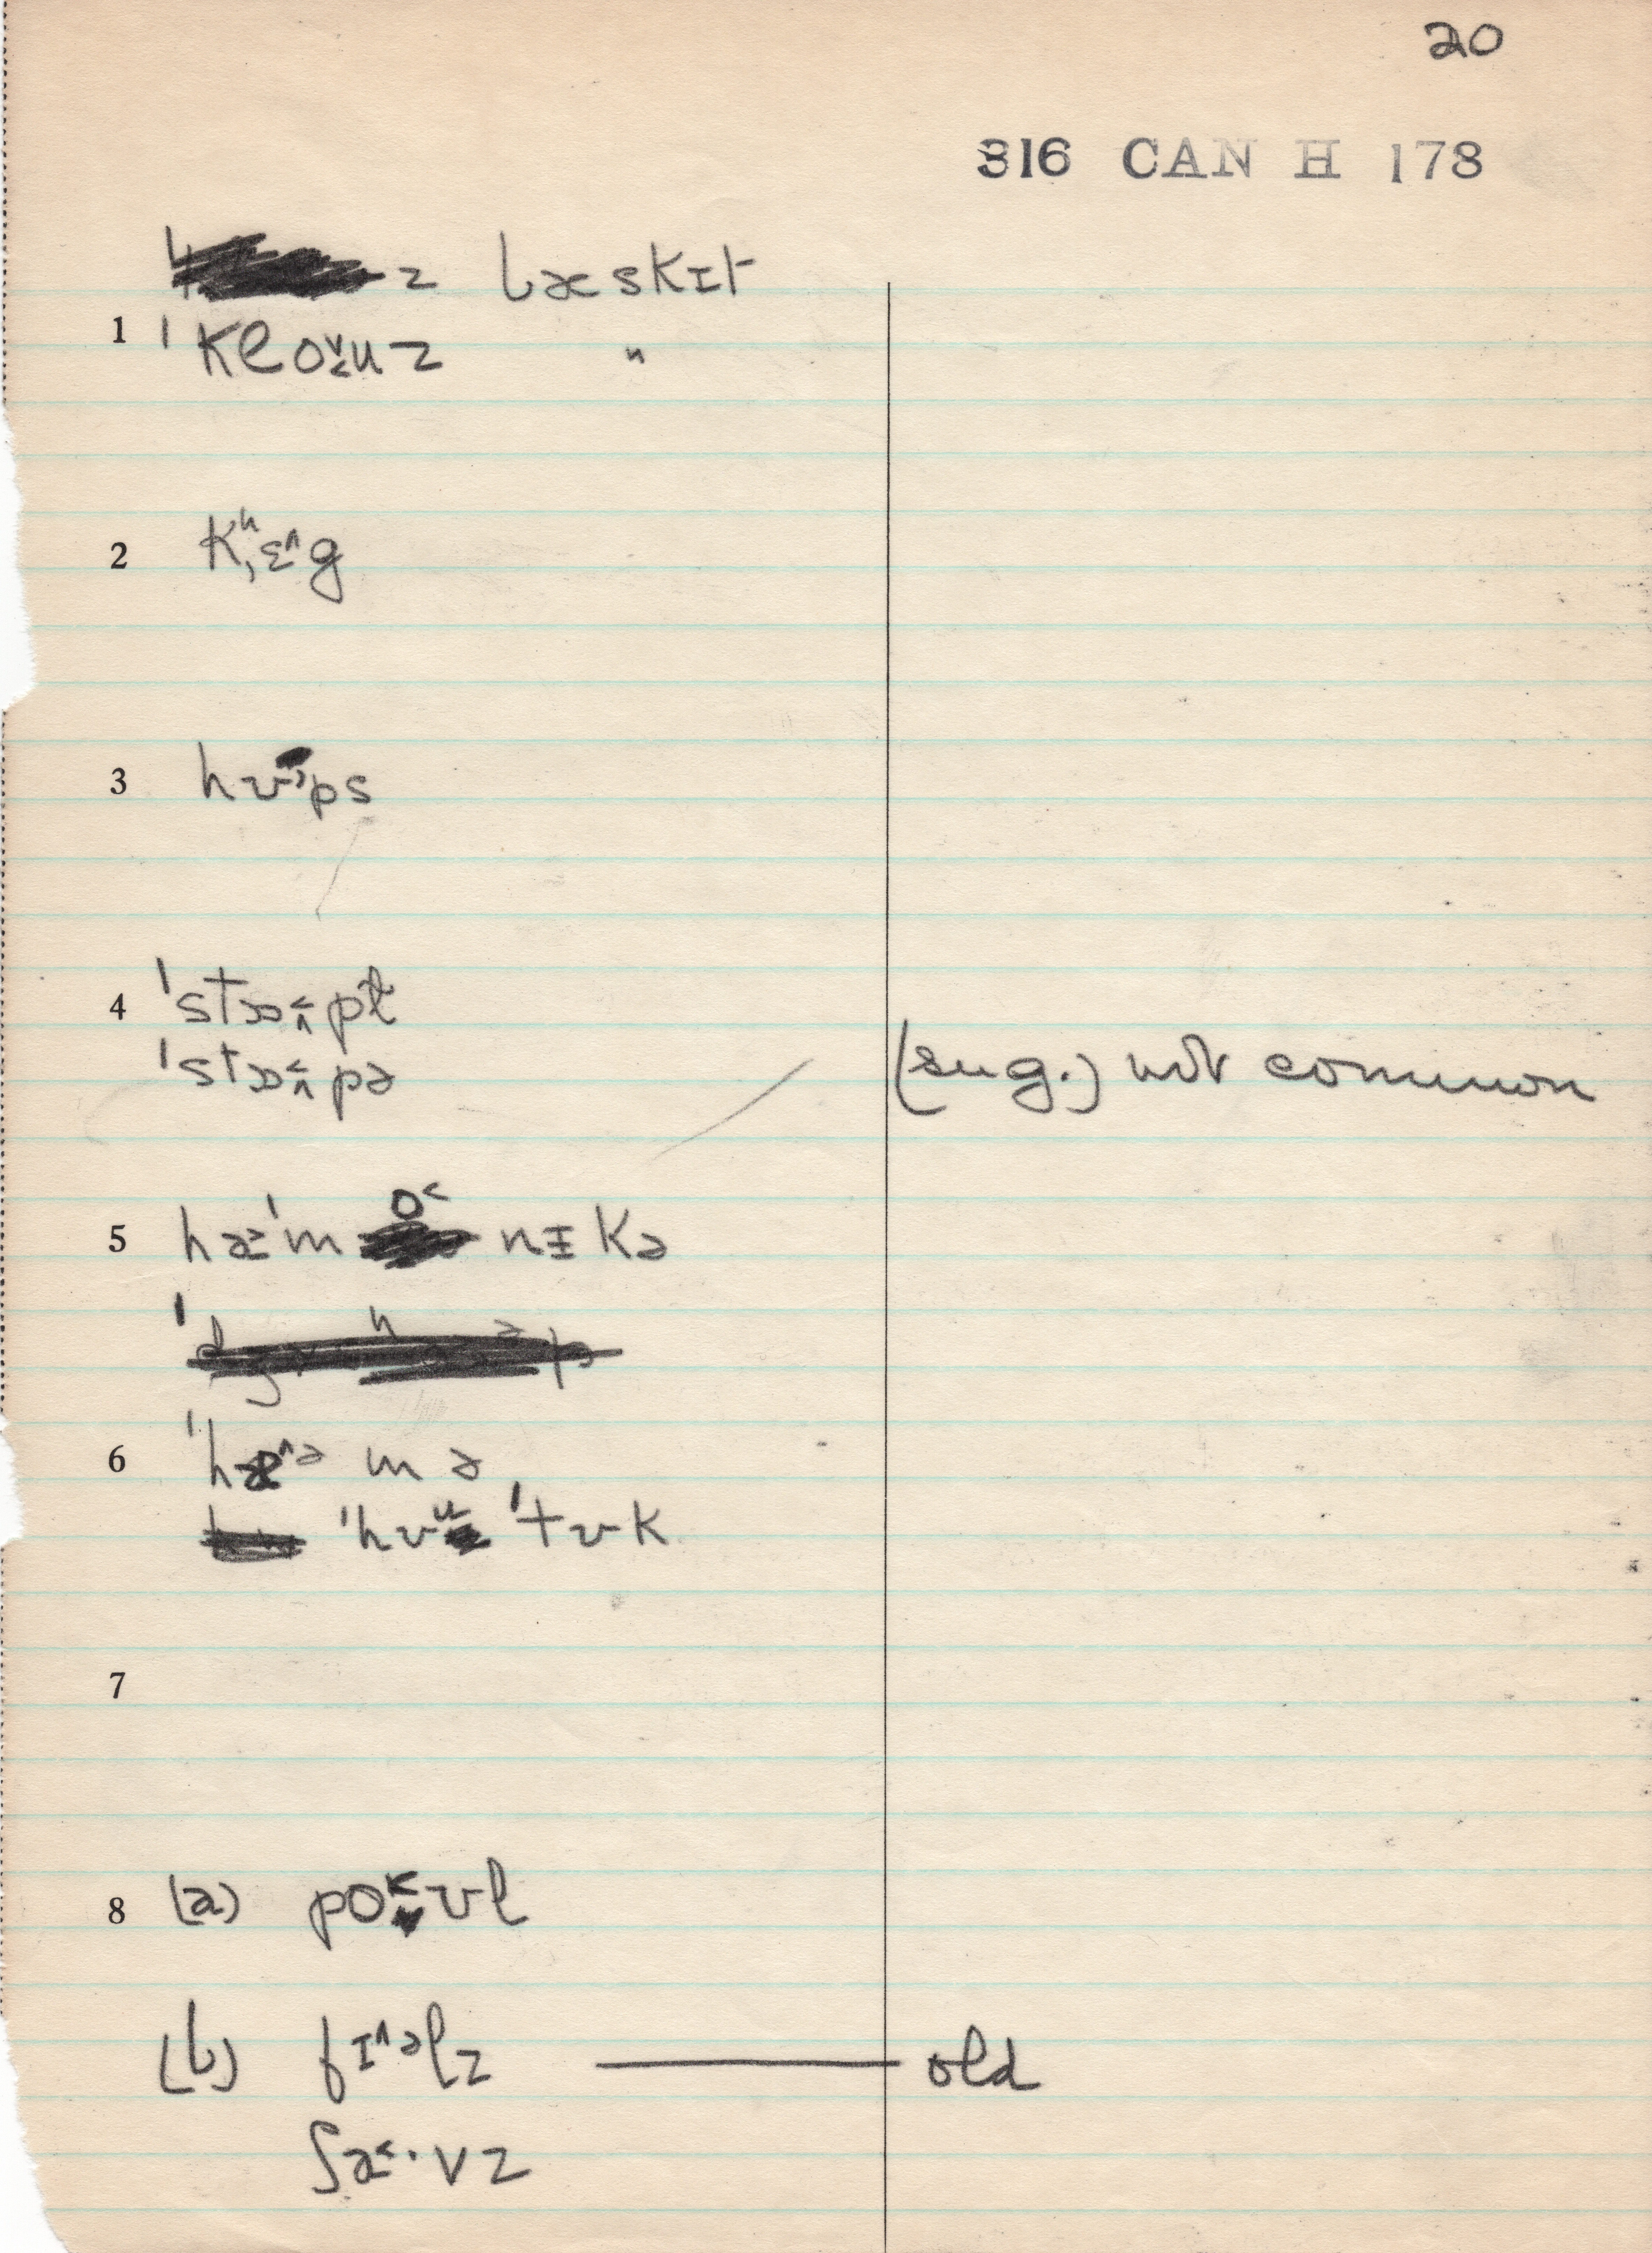 20
316 CAN H 178
z bæskɪt
1 ˈkloˇ˱uz "
2 kʰ˒ɛ^g
3 hʊps
4 ˈstɒ˂^pḷ
ˈstɒ˂^pə (sug.) not common
5 hæˈmo˂nɪkə
6 ˈhæ^ə mə
ˈhʊu ˈtʊk
7
8 (a) po˂ˇʊl
(b) fɪ^əlz — old
ʃæ˂·vz